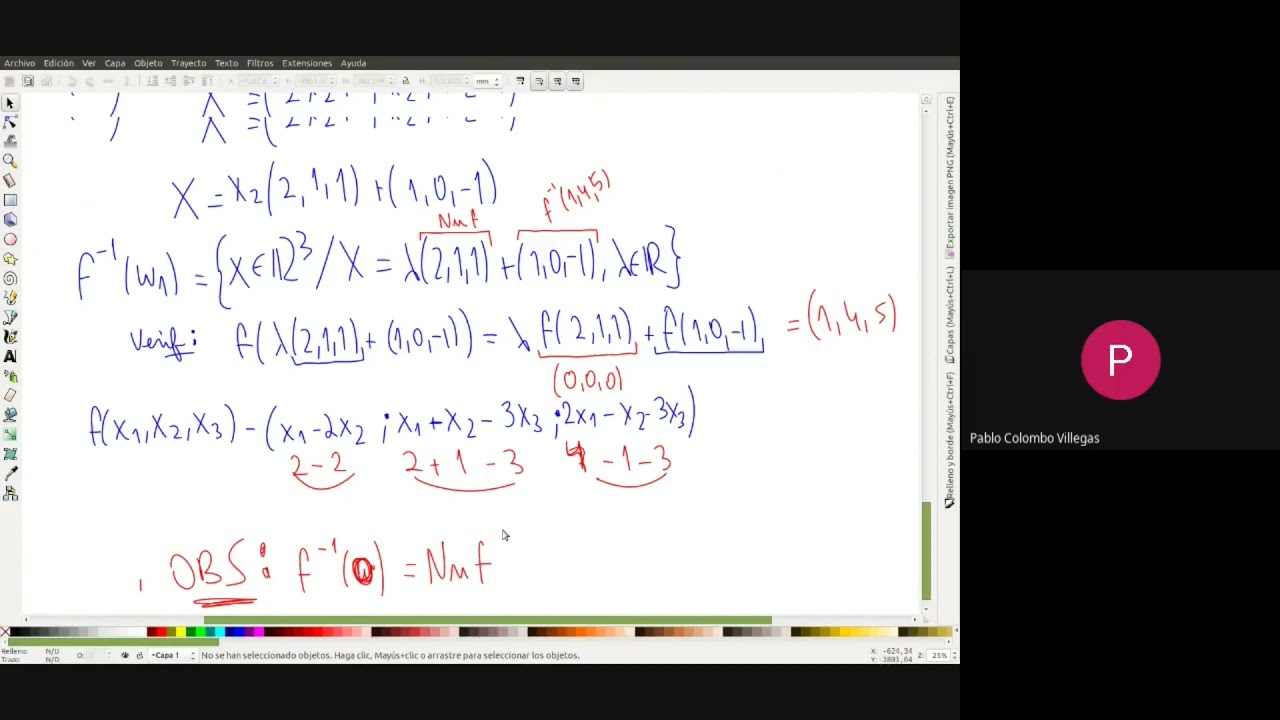 Archivo Edición Ver Capa Objeto Trayecto Texto Filtros Extensiones Ayuda
mm
X = x₂(2,1,1) + (1,0,-1)
Nuf f⁻¹(1,4,5)
f⁻¹(w₁) = {X∈ℝ³ / X = λ(2,1,1) + (1,0,-1), λ∈ℝ}
Verif: f(λ(2,1,1) + (1,0,-1)) = λ f(2,1,1) + f(1,0,-1) = (1,4,5)
(0,0,0)
f(x₁,x₂,x₃) - (x₁-2x₂ ; x₁+x₂-3x₃ ; 2x₁-x₂-3x₃)
2-2 2+1-3 4-1-3
OBS: f⁻¹(0) = Nuf
Exportar imagen PNG (Mayús+Ctrl+E)
Capas (Mayús+Ctrl+L)
Relleno y borde (Mayús+Ctrl+F)
P
Pablo Colombo Villegas
Relleno: N/D
Trazo: N/D
O:
•Capa 1
No se han seleccionado objetos. Haga clic, Mayús+clic o arrastre para seleccionar los objetos.
X: -624,34
Y: -3801,64
Z: 25%